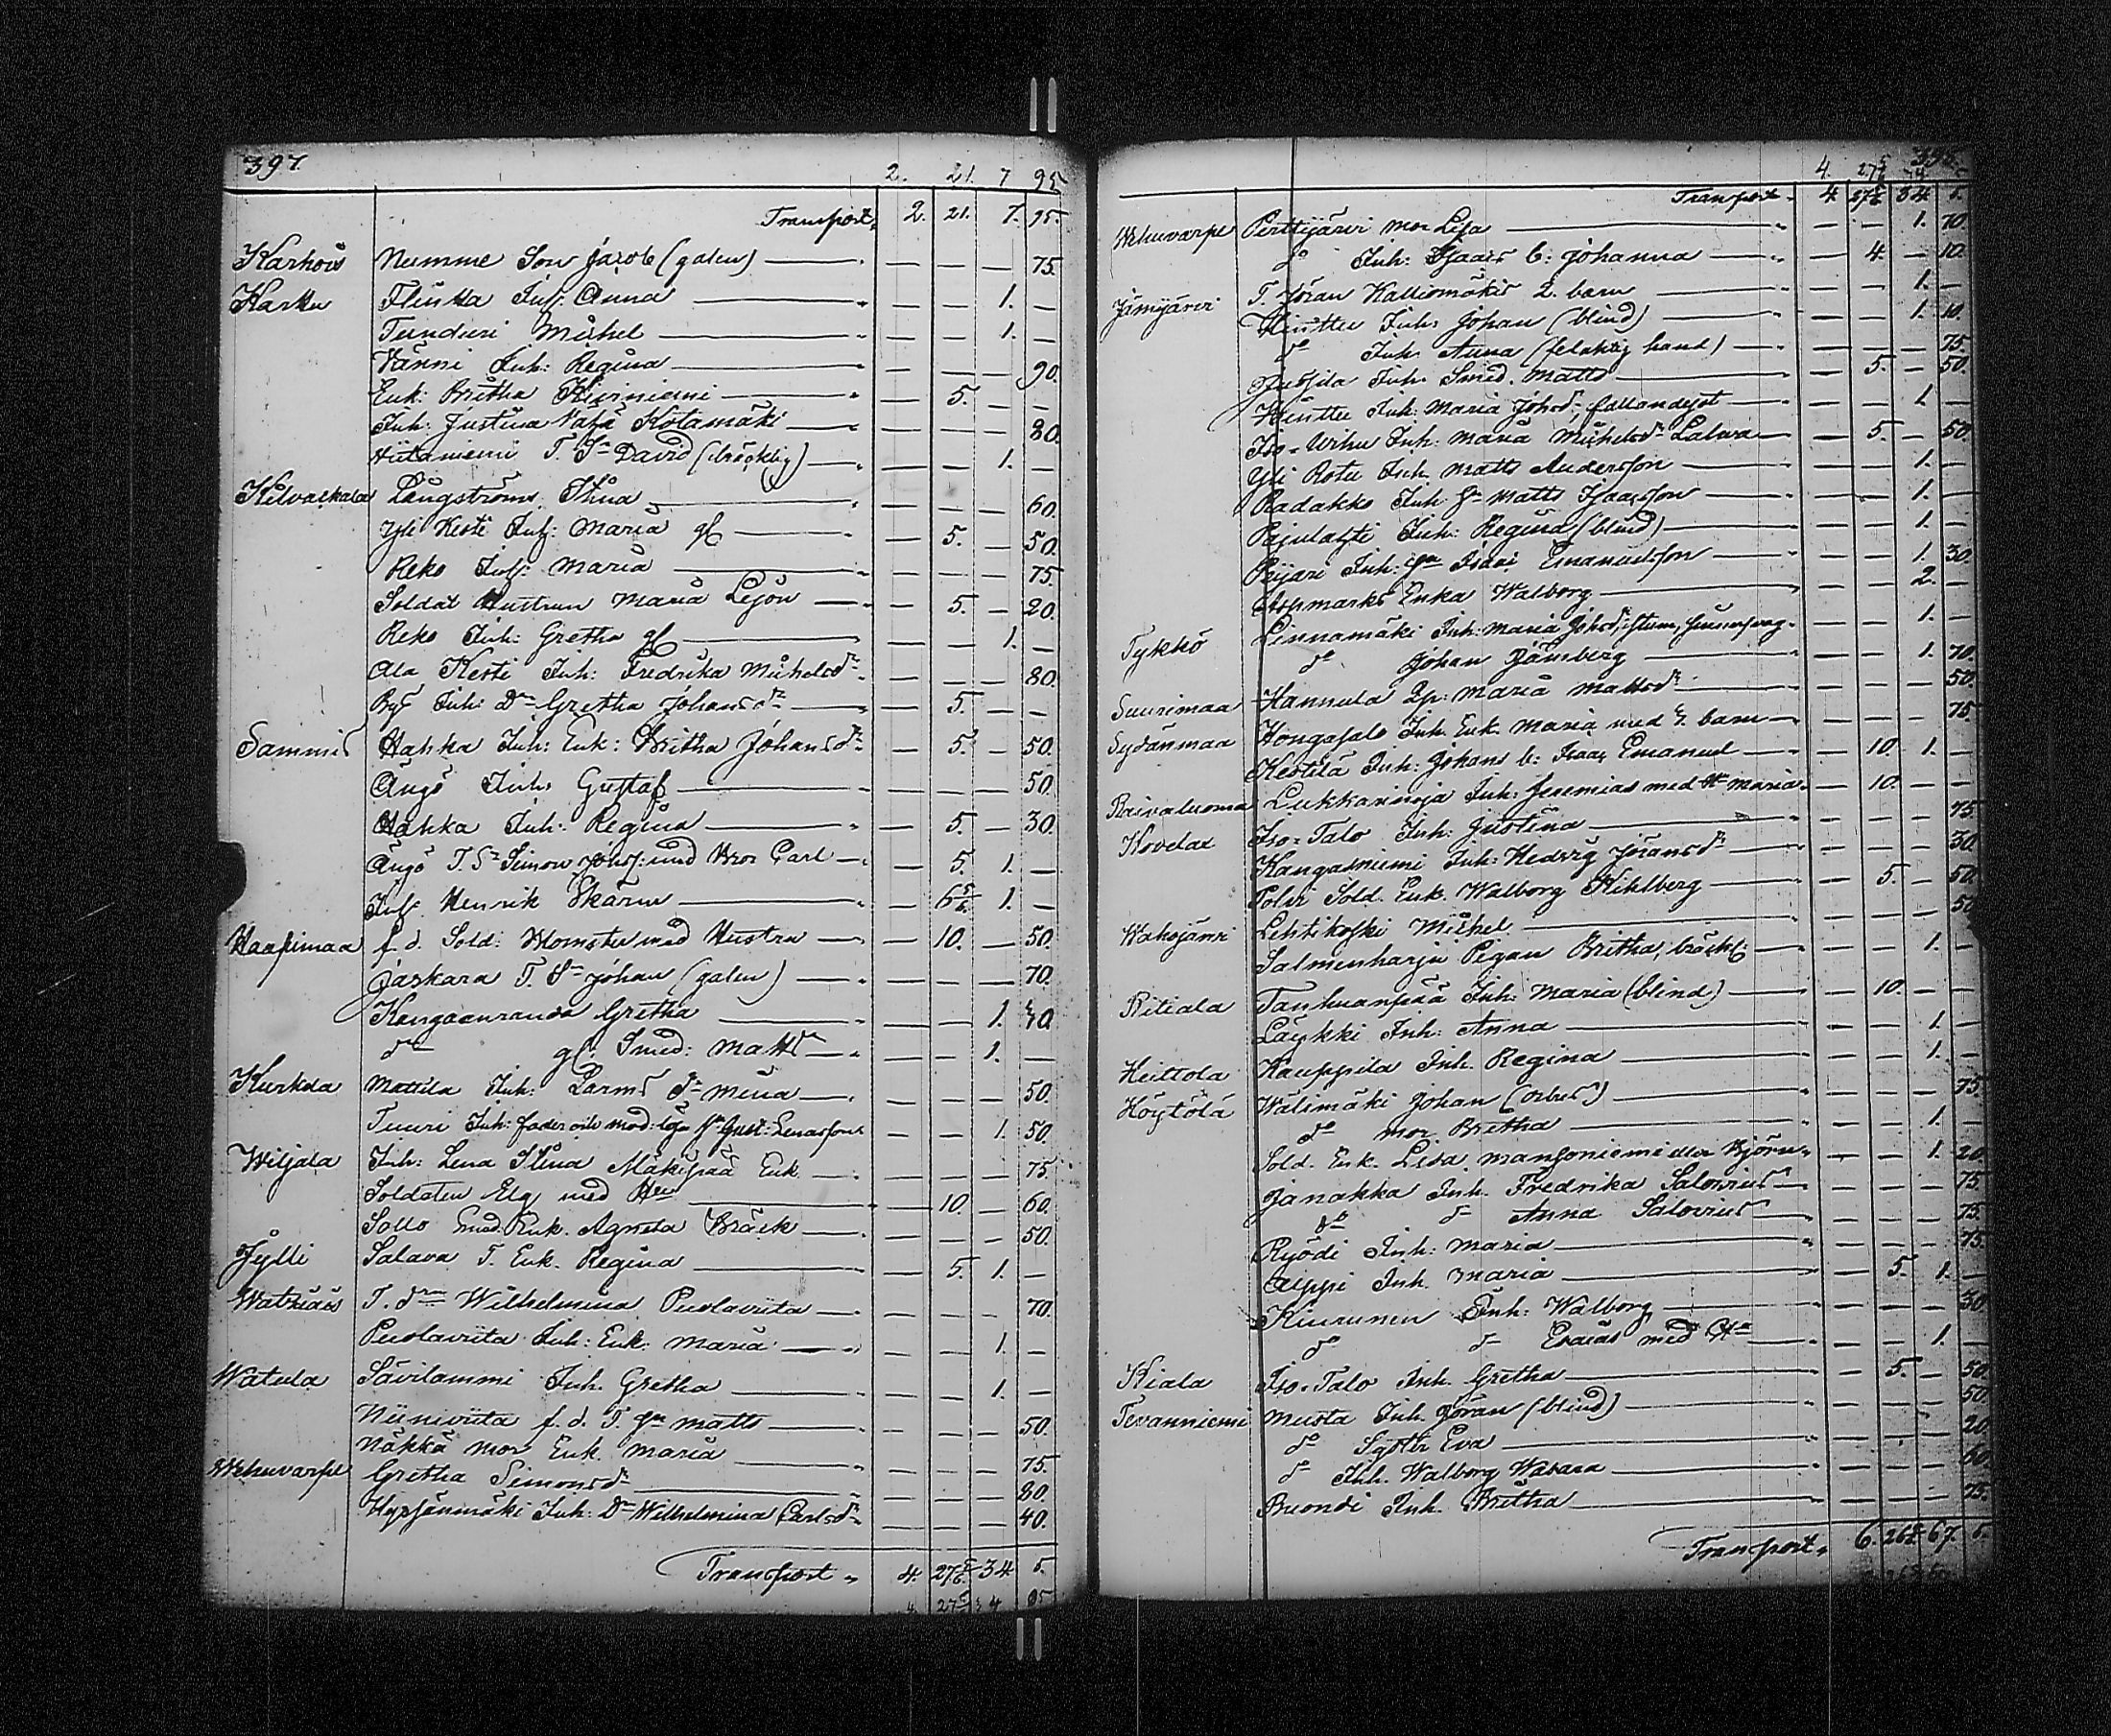 397.
2. 21. 7 95
Transport. 2. 21. 7. 95.
Karhois Numme Son Jacob (galen) — — — 75.
Karku Flinkka Inh. Anna — — 1. —
Tunduri Michel — — 1. —
Vänni Inh: Regina — — — 90.
Enk: Britha Kiviniemi — 5. — —
Inh: Justina Kotamäki — — — 80.
Hiitaniemi T. Sn David (bräcklig) — — 1. —
Kilvakkala Långströms Stina — — — 60.
Yli Kesti Inh: Maria gl — 5. — 50.
Reko Inh: Maria — — — 75.
Soldat Hustrun Maria Lejon — 5. — 20.
Reko Inh: Gretha gl — — 1. —
Ala Kesti Inh: Fredrika Michelsdr — — — 80.
Inh: Dr Gretha Johansdr — 5. — —
Sammis Hahka Inh: Enk: Britha Johansdr — 5. — 50.
Ängö Inh: Gustaf — — — 50.
Hahka Inh: Regina — 5. — 30.
Ängö T. Sn Simon Johs: med Bror Carl — 5. 1. —
Inh. Henrik Skarin — 6 5/6 1. —
Haapimaa f. d. Sold: Blomster med Hustru — 10. — 50.
Jaskara T. Sn Johan (galen) — — — 70.
Kangaanranda Gretha — — 1. 40.
do gl. Smed: Matts — — 1. —
Kurkela Mattila Inh: Larms dr Mina — — — 50.
Tuuri Inh: fader och moderlösa — — 1. 50.
Wiljala Inh: Lena Stina Mäkipää Enk. — — — 75.
Soldaten Elg med Hu — 10. — 60.
Sallo Smed. Enk. Agneta Bräck — — — 50.
Jylli Salava T. Enk. Regina — 5. 1. —
Watziäis T. drn Wilhelmina Puolaviita — — — 70.
Puolaviita Inh: Enk: Maria — — 1. —
Watula Savilammi Inh. Gretha — — 1. —
Niiniviita f. d. T. gn Matts — — — 50.
Näkkä mor Enk Maria — — — 75.
Wehuvarpe Gretha Simonsdr — — — 80.
Hypjänmäki Inh: Dr Wilhelmina Carlsdr — — — 40.
Transport. 4. 27 5/6 34 5.
4. 27 5/6 34 05
4. 27 5/6 34
Transport. 4 27 5/6 34 5.
Wehuvarpe Perttijärvi mor Lisa — — 1. 70.
do Inh: Isaacs b: Johanna — 4. — 10.
Jämijärvi T. Jöran Kalliomäkis 2. barn — — 1. —
Hinttu Inh: Johan (blind) — — 1. 10.
do Inh: Anna (felaktig hand) — — — 75.
Inh. Smed. Matts — 5. — 50.
Hinttu Inh: Maria Johsdr fallandesot — — 1. —
Iso-Wihu Inh: Maria Michelsdr Lalwa — 5. — 50.
Yli Rotu Inh. Matts Andersson — — 1. —
Radakko Inh Gn Matts Isacsson — — 1. —
Pajulahti Inh: Regina (blind) — — 1. —
Peijari Inh: Gn Isaac Emanuelsson — — 1. 30.
Stopmarks Enka Walborg — — 2. —
Tykkö Linnamäki Inh: Maria Johsdr — — 1. —
do Johan Tjänsberg — — 1. 70.
Suurimaa Hannula Maria Mattsdr — — — 50.
Sydänmaa Hongasalo Inh. Enk. Maria med 4. barn — — — 75.
Kestilä Inh: Johans b: Isaac Emanuel — 10 1. —
Raivaluoma Lukkarinoja Inh: Jeremias med Hu Maria — 10. — —
Kovelax Iso-Talo Inh: Justina — — — 75.
Kangasniemi Inh: Hedvig Jöransdr — — — 30.
Polvi Sold. Enk. Walborg Kihlberg — 5. — 50.
Wahojärvi Lehtikoski Michel — — — 50
Salmenharju Pigan Britha, bräckl: — — 1. —
Ritiala Tanhuanpää Inh: Maria (blind) — 10. — —
Läykki Inh: Anna — — 1. —
Heittola Kauppila Inh. Regina — — 1. —
Höytölä Wälimäki Johan — — — 75.
do mor Britha — — 1. —
Sold. Enk. Lisa Mansoniemi eller Björn — — 1. 20.
Janakka Inh. Fredrika Salovius — — — 75.
do d— Anna Salovius — — — 75.
Pyödi Inh: Maria — — — 75.
Alppi Inh. Maria — 5. 1. —
Kiurunen Inh: Walborg — — — 30.
do d— Esaias med Hu — — 1. —
Kiala Iso-Talo Inh. Gretha — 5. — 50.
Tevanniemi Musta Inh. Jöran (blind) — — — 50.
do Syster Eva — — — 20.
do Inh. Walborg Wabara — — — 60.
Ruondi Inh. Britha — — — 75.
Transport. 6. 26 5/6 67. 5.